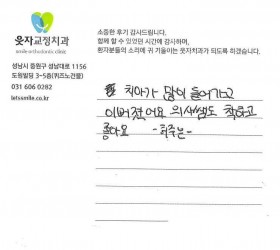 소중한 후기 감사드립니다.
함께 할 수 있었던 시간에 감사하며,
환자분들의 소리에 귀 기울이는 웃자치과가 되도록 하겠습니다.
웃자교정치과
smile orthodontic clinic
성남시 중원구 성남대로 1156
도원빌딩 3-5층(위즈노건물)
031 606 0282
letssmile.co.kr
치아가 많이 들어가고
이뻐졌어요 의사쌤도 착하고
좋아요 -최주는-